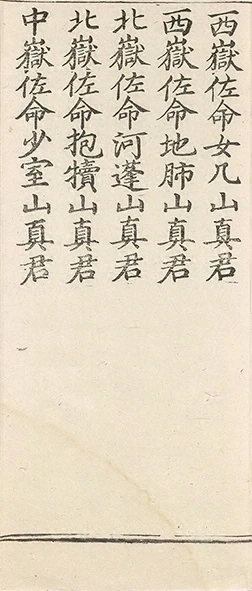 西嶽佐命女几山真君
西嶽佐命地肺山真君
北嶽佐命河逢山真君
北嶽佐命抱犢山真君
中嶽佐命少室山真君